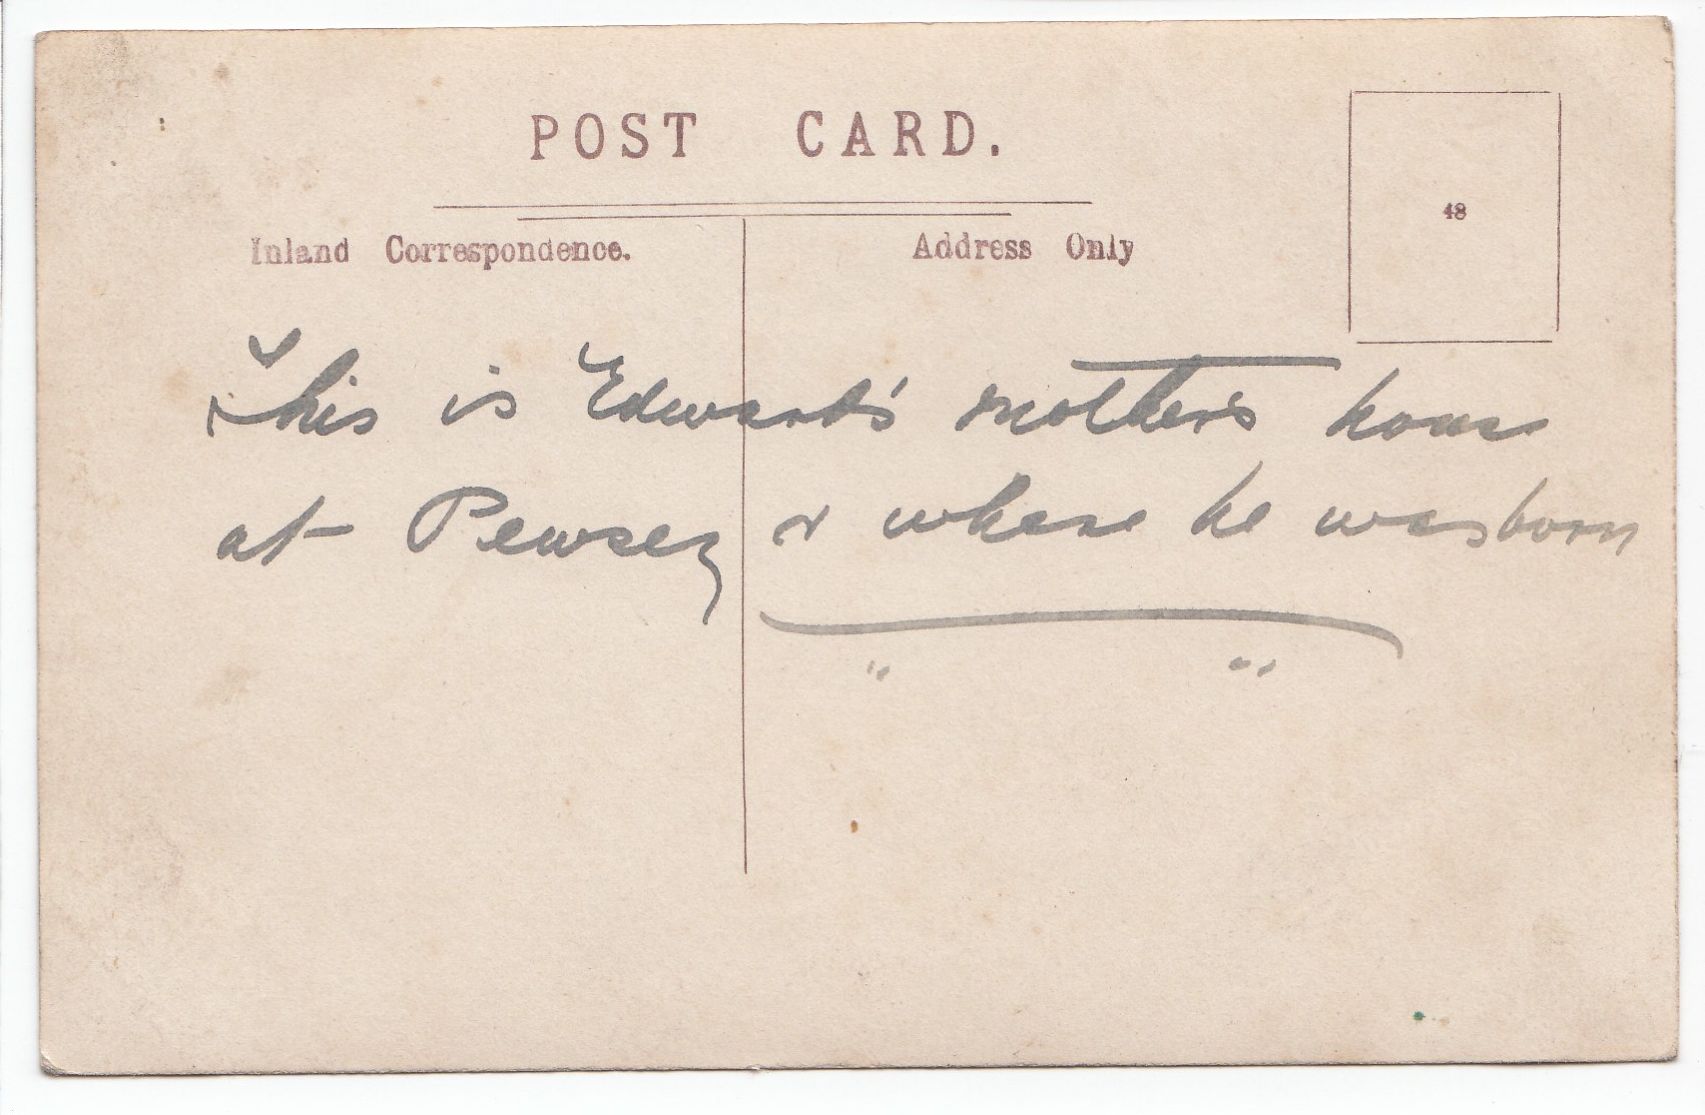 POST CARD.
48
Inland Correspondence.
Address Only
This is Edward's mother's house
at Pewsey & where he was born